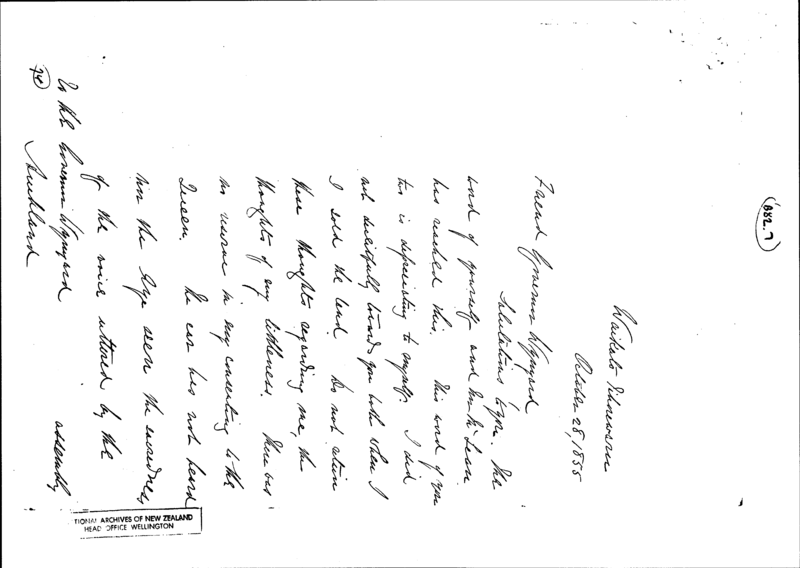 (B82.7)
Waikato
October 28, 1855
Friend Governor Wynyard
Salutations to you. The
word of yourself and Mr McLean
has reached this. This word of you
two is depreciating to myself. I did
not deceitfully towards you both when I
I sold the land. Do not
these thoughts regarding me, the
thoughts of my littleness. There has
no in my consenting to the
Queen. The ear has not heard
nor the Eye seen the
of the voice uttered by the
assembly
To the Governor Wynyard
Auckland
TIONAL ARCHIVES OF NEW ZEALAND
HEAD OFFICE WELLINGTON